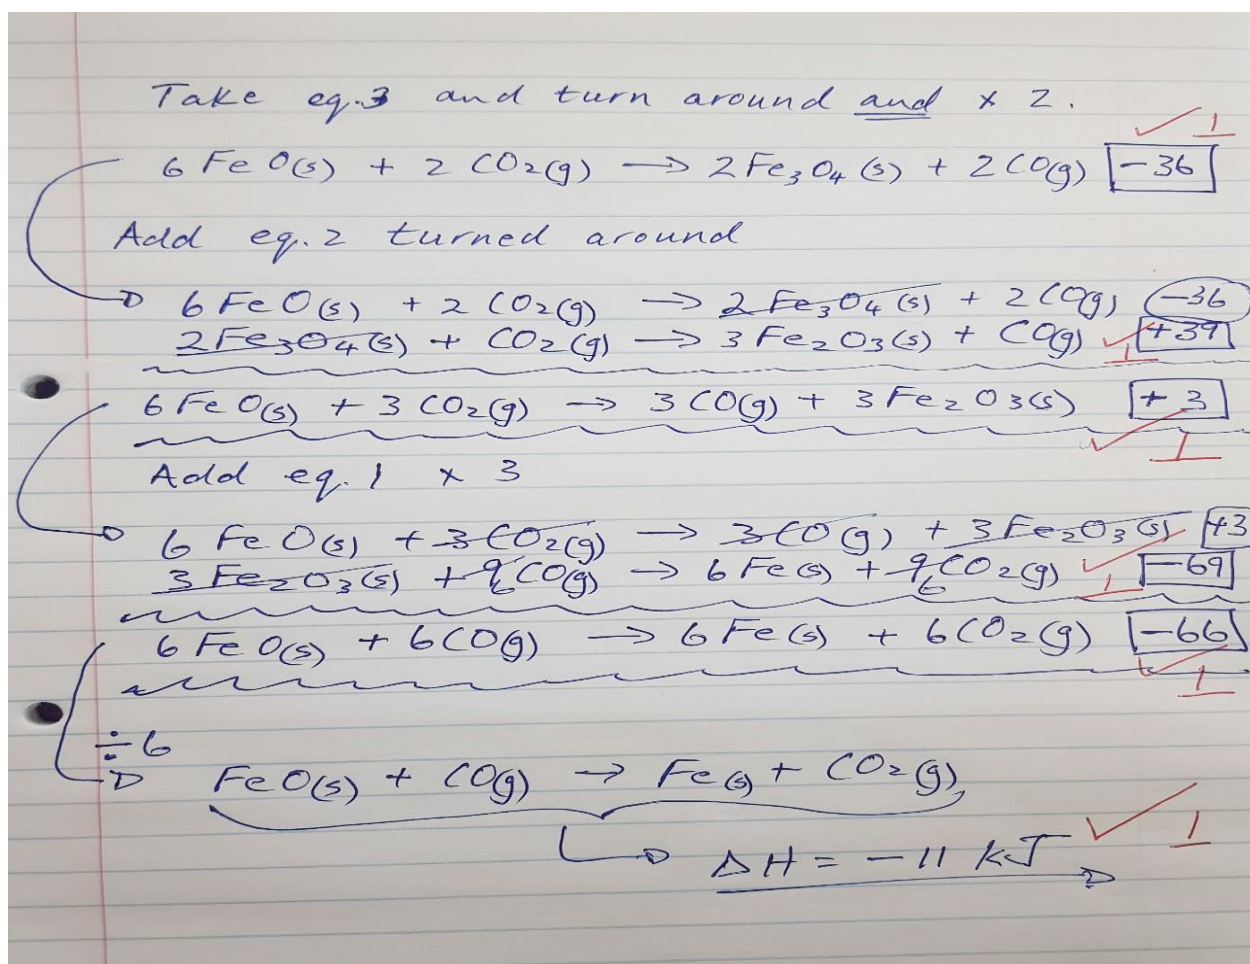 Take eq.3 and turn around and x 2.
✓ 1
6 FeO(s) + 2 CO2(g) → 2Fe3O4(s) + 2CO(g) -36
Add eq.2 turned around
6 FeO(s) + 2 CO2(g) → 2Fe3O4(s) + 2CO(g) -36
2Fe3O4(s) + CO2(g) → 3Fe2O3(s) + CO(g) ✓ 1 +39
6 FeO(s) + 3 CO2(g) → 3CO(g) + 3Fe2O3(s) + 3
✓ 1
Add eq.1 x 3
6 FeO(s) + 3CO2(g) → 3CO(g) + 3Fe2O3(s) +3
3Fe2O3(s) + 9CO(g) → 6Fe(s) + 9CO2(g) ✓ 1 -69
6 6
6 FeO(s) + 6CO(g) → 6Fe(s) + 6CO2(g) -66
✓ 1
÷6
FeO(s) + CO(g) → Fe(s) + CO2(g)
ΔH = -11 kJ ✓ 1